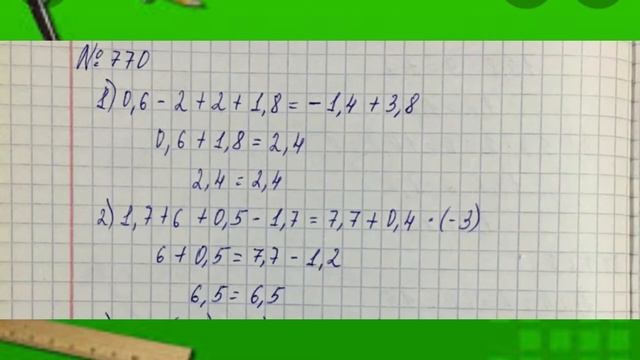 № 770
1) 0,6 - 2 + 2 + 1,8 = - 1,4 + 3,8
0,6 + 1,8 = 2,4
2,4 = 2,4
2) 1,7 + 6 + 0,5 - 1,7 = 7,7 + 0,4 · (-3)
6 + 0,5 = 7,7 - 1,2
6,5 = 6,5